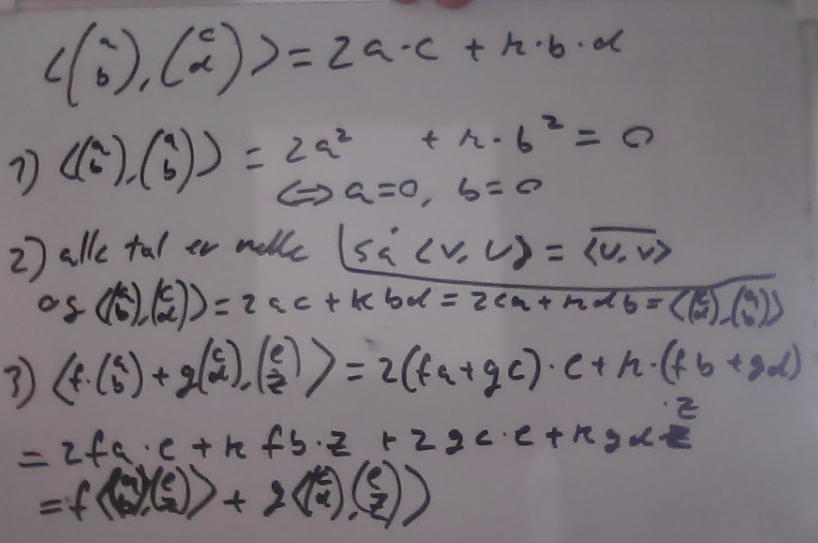 ⟨(a b), (c d)⟩ = 2a·c + k·b·d
1) ⟨(a b), (a b)⟩ = 2a² + k·b² = 0
⇔ a=0, b=0
2) alle tal er reelle så ⟨v, u⟩ = ⟨u, v⟩
og ⟨(a b), (c d)⟩ = 2ac + kbd = 2ca + kdb = ⟨(c d), (a b)⟩
3) ⟨f·(a b) + g(c d), (e z)⟩ = 2(fa + gc)·e + k·(fb + gd)
·z
= 2fa·e + kfb·z + 2gc·e + kgd
= f⟨(a b), (e z)⟩ + g⟨(c d), (e z)⟩